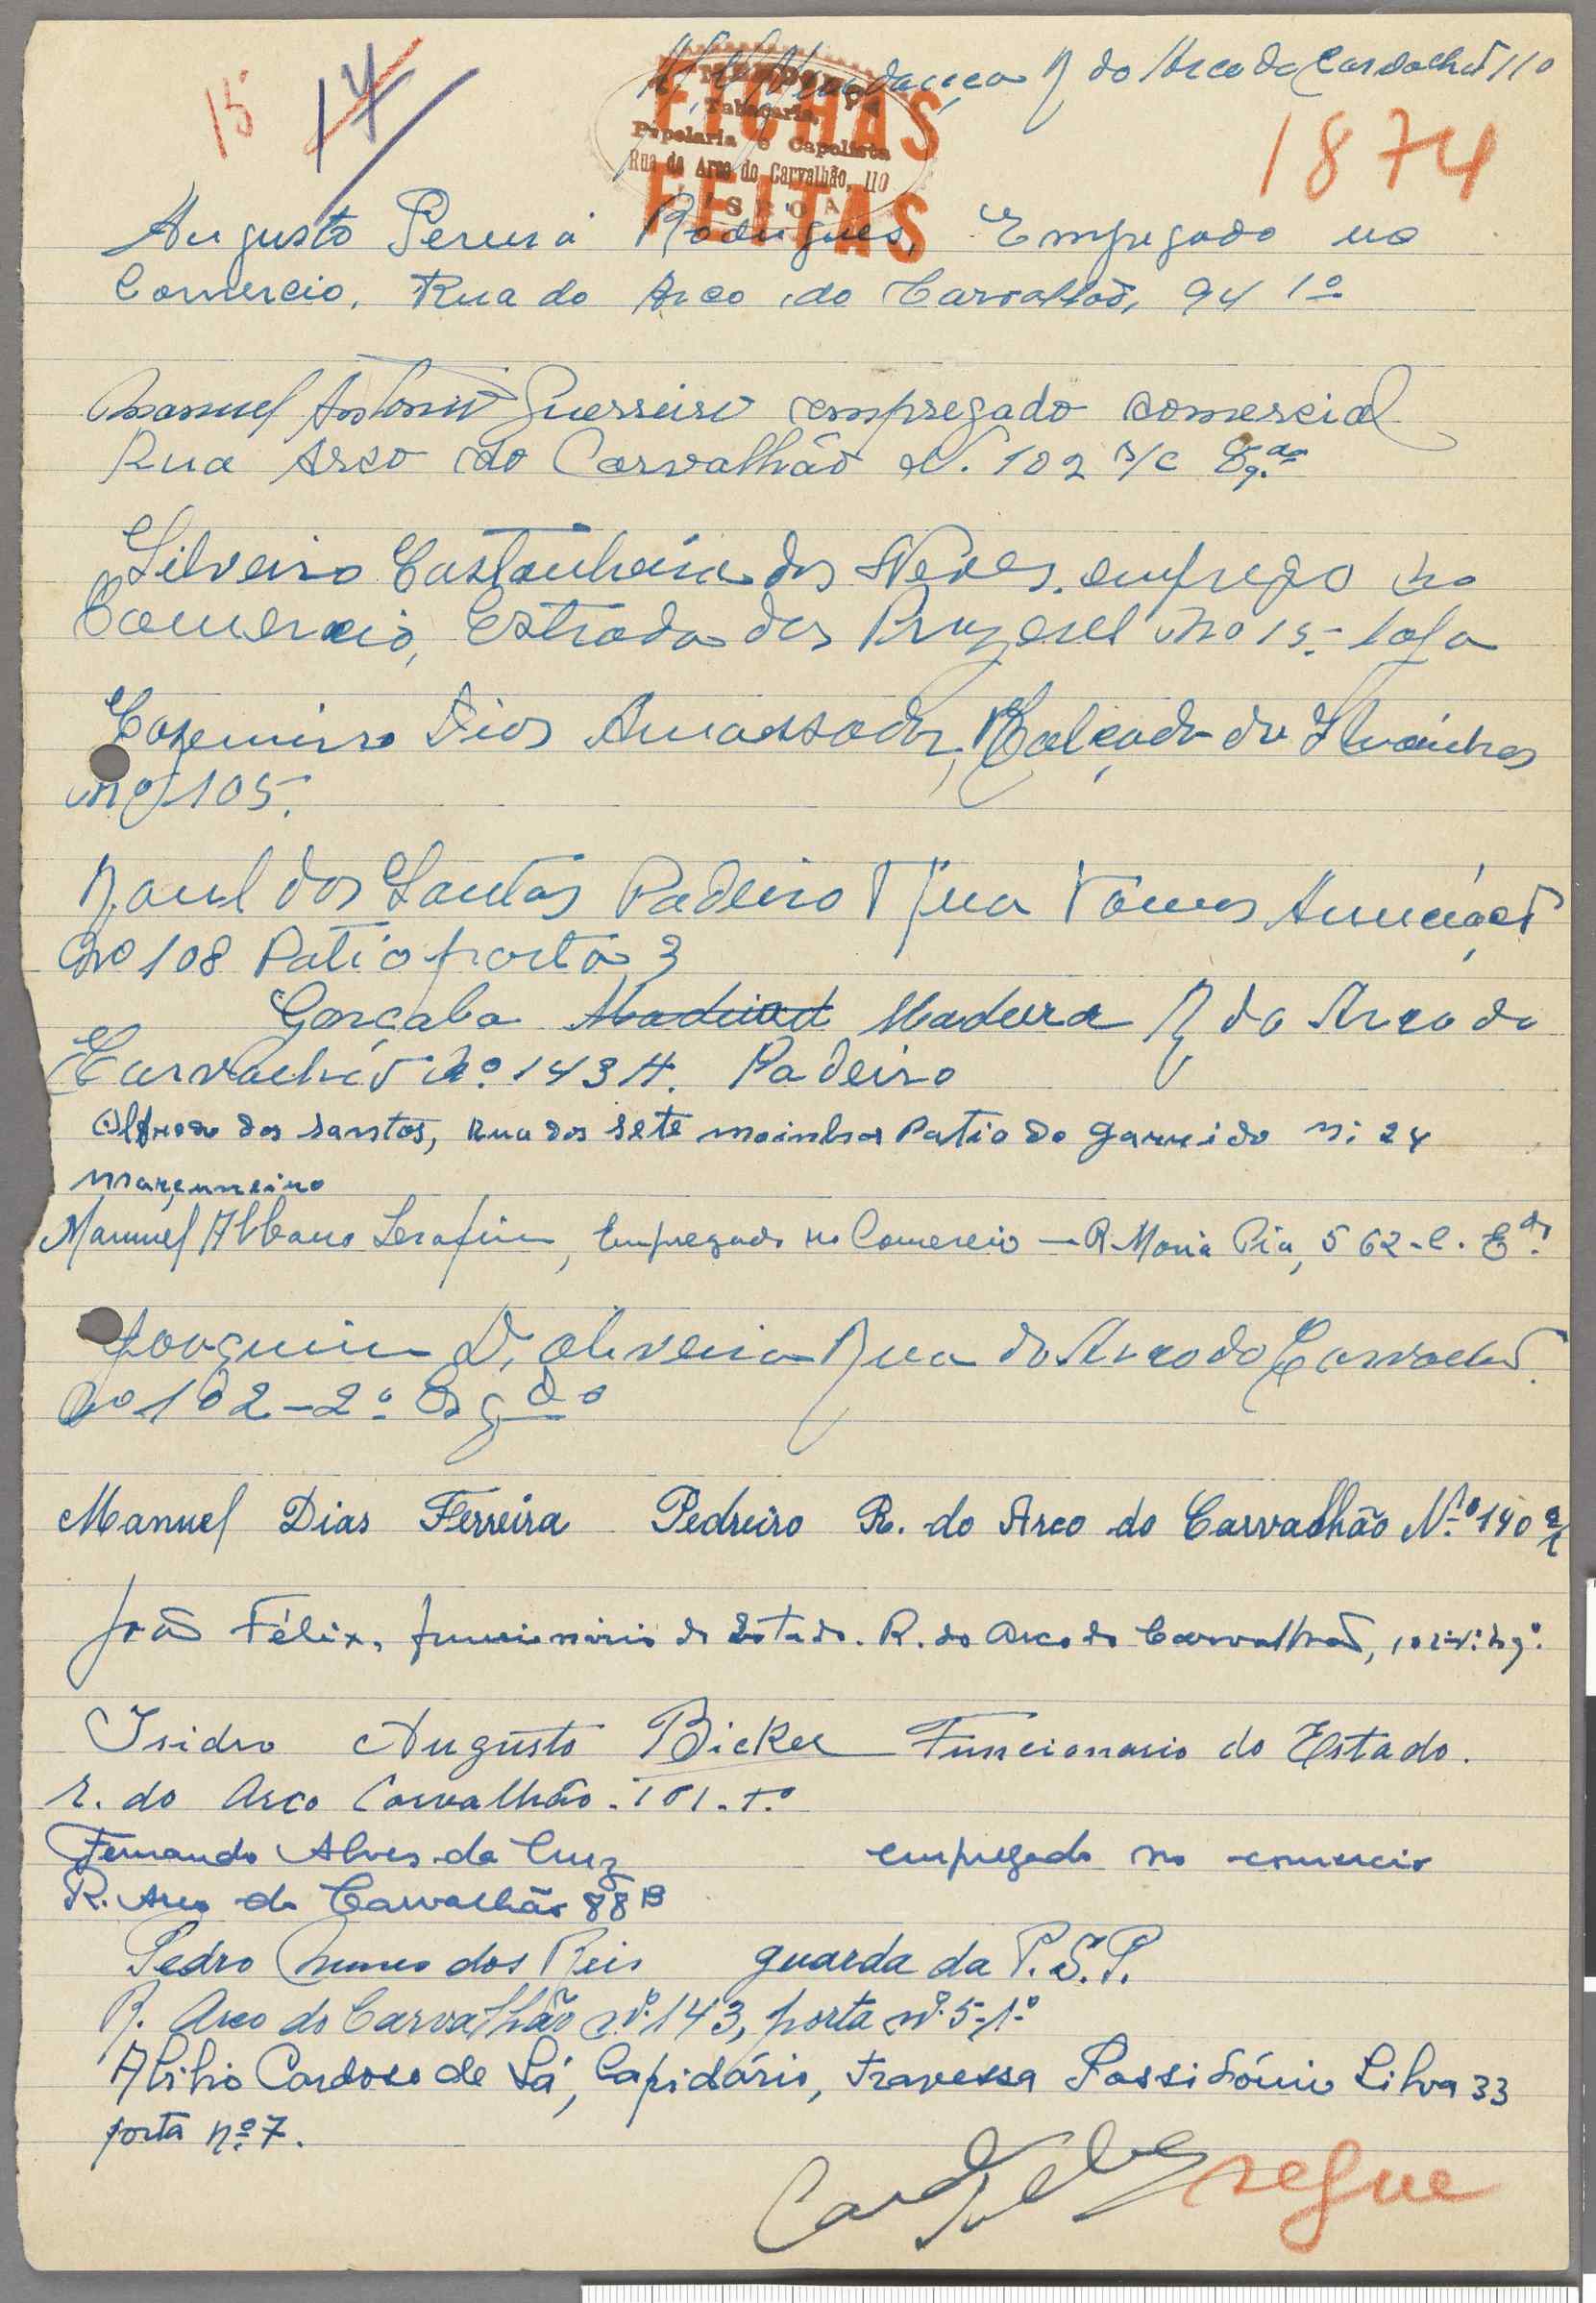 15 14
R do Arco do Carvalhão 110
Tabacaria,
Papelaria e Capelista
Rua do Arco do Carvalhão, 110
LISBOA
FICHAS
FEITAS
1874
Augusto Pereira Rodrigues, Empregado no
Comercio. Rua do Arco do Carvalhão, 94 1º
Manuel Antonio Guerreiro empregado comercial
Rua Arco do Carvalhão N. 102 r/c Esq.do
Silveiro Castanheira das Neves. emprego no
Comercio, Estrada dos Prazeres no 15 - loja
Cazemiro Dias Amassador, Calçada do
no 105.
Raul dos Santos Padeiro Rua Tomas Anunciação
no 108 Patio porta 3
Gonçalo Madeira R do Arco do
Carvalhão No. 143 A. Padeiro
Alfredo dos Santos, Rua dos Sete moinhos Patio do garrido n: 24
marceneiro
Manuel Albano Serafim, Empregado no Comercio — R. Maria Pia, 562-C. E.do
Joaquim D, oliveira Rua do Arco do Carvalhão
no 102-2º Esqdo
Manuel Dias Ferreira Pedreiro R. do Arco do Carvalhão N.º 140
João Félix, funcionário do Estado. R. do Arco do Carvalhão,
Isidro Augusto Bicker Funcionario do Estado.
r. do Arco Carvalhão. 101. 1.º
Fernando Alves da Cruz empregado no comercio
R. Arco do Carvalhão 88 B
Pedro Nunes dos Reis guarda da P.S.P.
R. Arco do Carvalhão nº. 143, porta nº. 5-1º
Abilio Cardoso de Sá, Lapidário, Travessa Possidónio Silva 33
porta nº. 7.
segue